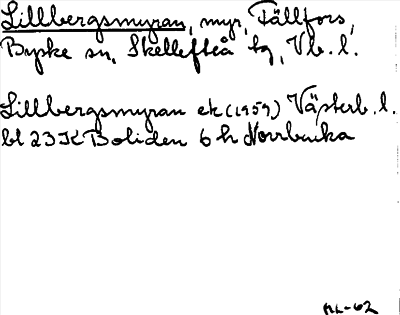 Lillbergsmyran, myr, Fällfors,
Byske sn, Skellefteå tg, Vb. l.
Lillbergsmyran ek (1959) Västerb. l.
bl 23K Boliden 6 h Norrbacka
ML-62